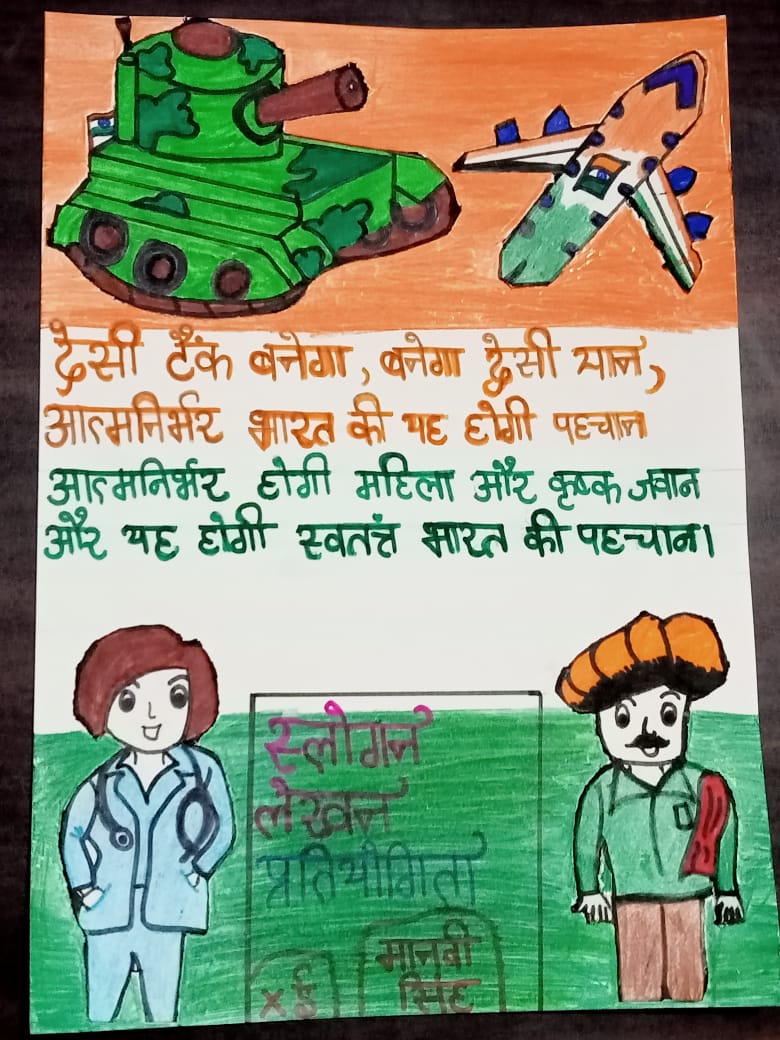 देसी टैंक बनेगा, बनेगा देसी यान,
आत्मनिर्भर भारत की यह होगी पहचान
आत्मनिर्भर होगी महिला और कृष्क जवान
और यह होगी स्वतंत्र भारत की पहचान।
स्लोगन
लेखन
प्रतियोगिता
मानवी
सिंह